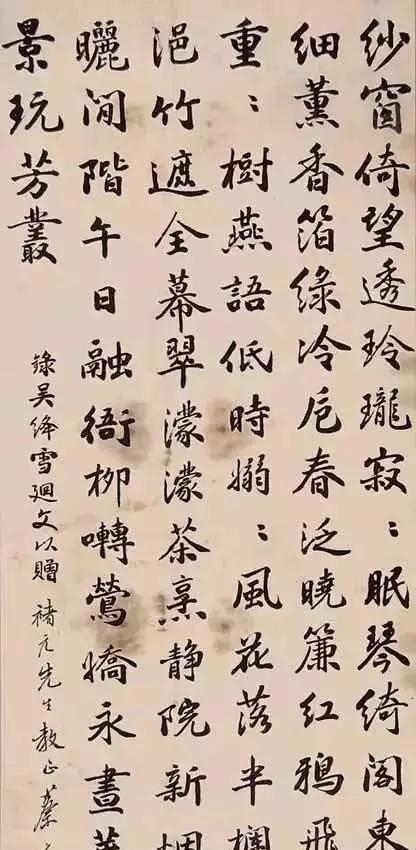 紗窗倚望透玲瓏寂〻眠琴綺閣東
細薰香箔綠冷卮春泛曉簾紅鴉飛
重〻樹燕語低時嫋〻風花落半欄
浥竹遮全幕翠濛濛茶烹静院新烟
曬閒階午日融衙柳囀鶯嬌永晝
景玩芳叢
錄吳絳雪迴文以贈 禇元先生教正 蔡